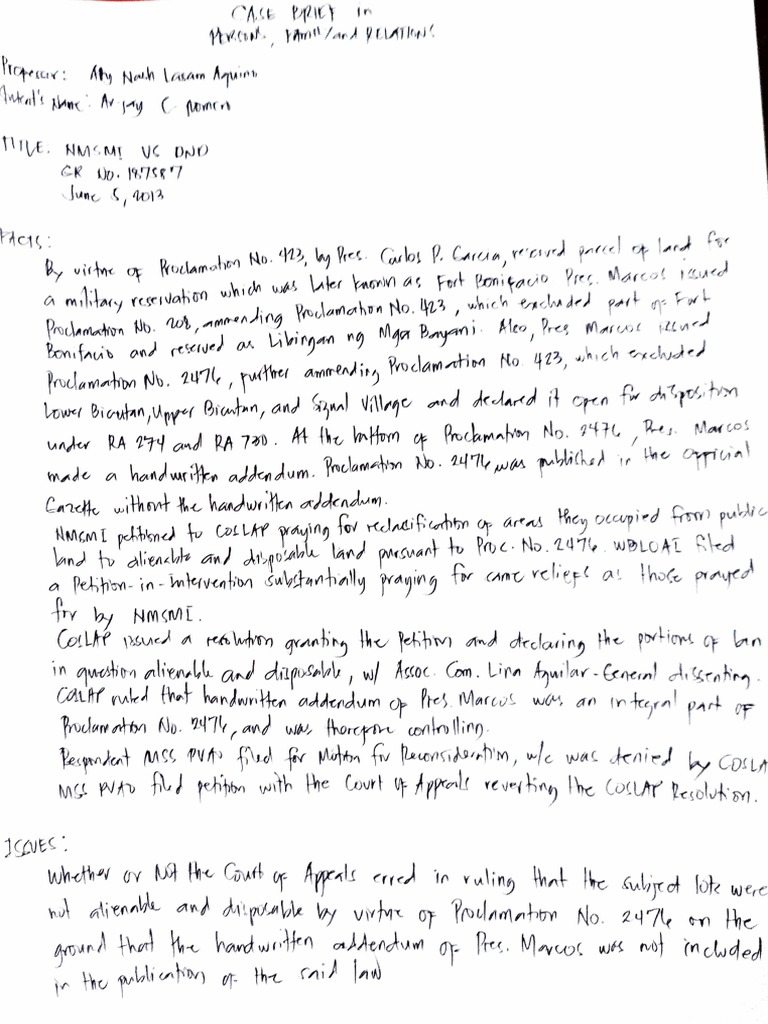 CASE BRIEF in
PERSONS, FAMILY and RELATIONS
Professor: Atty Nash Lasam Aquino
Name: Ar jay C. Romero
TITLE: NMSMI VS DND
GR NO. 187587
June 5, 2013
FACTS:
By virtue of Proclamation No. 423, by Pres. Carlos P. Garcia, reserved parcel of land for
a military reservation which was later known as Fort Bonifacio Pres. Marcos issued
Proclamation No. 208, ammending Proclamation No. 423, which excluded part of Fort
Bonifacio and reserved as Libingan ng Mga Bayani. Also, Pres Marcos issued
Proclamation No. 2476, further ammending Proclamation No. 423, which excluded
Lower Bicutan, Upper Bicutan, and Signal Village and declared it open for disposition
under RA 274 and RA 730. At the bottom of Proclamation No. 2476, Pres. Marcos
made a handwritten addendum. Proclamation No. 2476 was published in the Official
Gazette without the handwritten addendum.
NMSMI petitioned to COSLAP praying for reclassification of areas they occupied from public
land to alienable and disposable land pursuant to Proc. No. 2476. WBLOAI filed
a Petition-in-Intervention substantially praying for same reliefs as those prayed
for by NMSMI.
COSLAP issued a resolution granting the Petition and declaring the portions of lan
in question alienable and disposable, w/ Assoc. Com. Lina Aguilar-General dissenting.
COSLAP ruled that handwritten addendum of Pres. Marcos was an integral part of
Proclamation No. 2476, and was therefore controlling.
Respondent MSS PVAO filed for Motion for Reconsideration, w/c was denied by COSLA
MSS PVAO filed petition with the Court of Appeals reverting the COSLAP Resolution.
ISSUES:
Whether or Not the Court of Appeals erred in ruling that the subject lots were
not alienable and disposable by virtue of Proclamation No. 2476 on the
ground that the handwritten addendum of Pres. Marcos was not included
in the publication of the said law